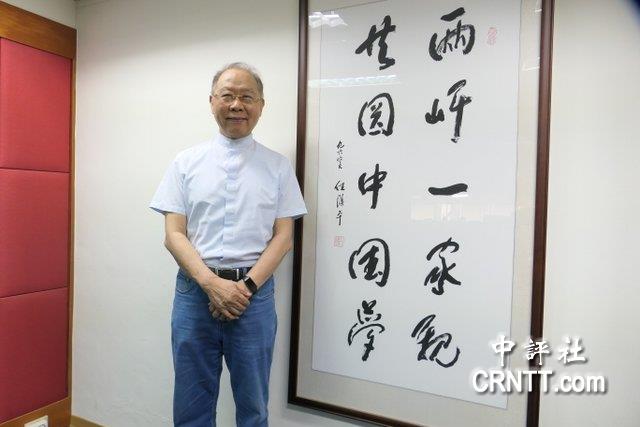 兩岸一家親
共圓中國夢
任漢平
中評社
CRNTT.com